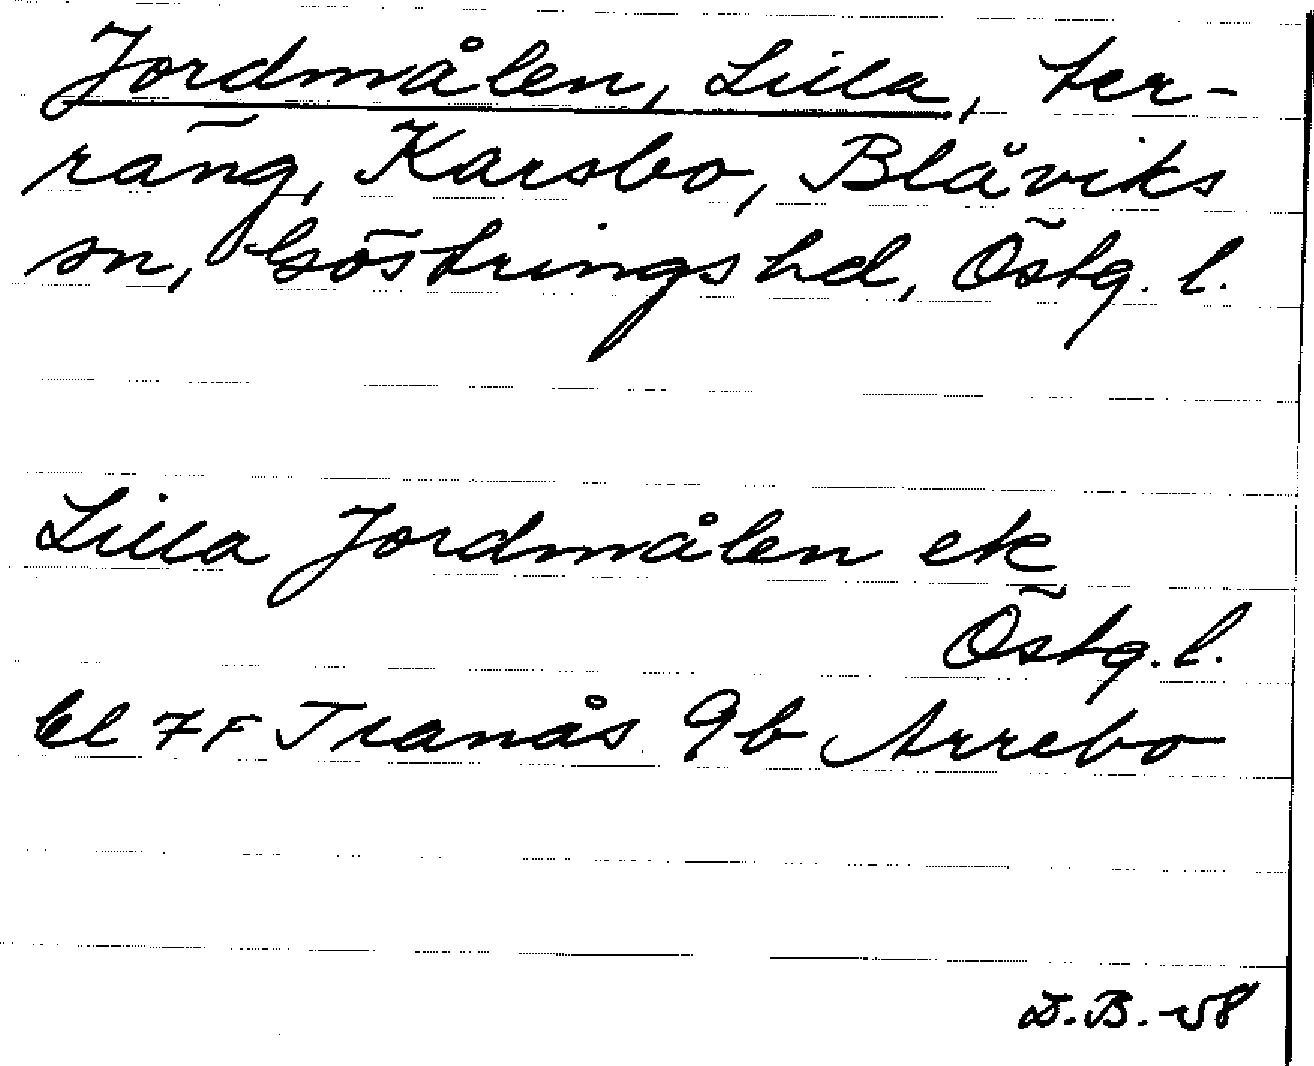 Jordmålen, Lilla, ter-
räng, Karsbo, Blåviks
sn, Göstrings hd, Östg. l.
Lilla Jordmålen ek
Östg. l.
bl 7F Tranås 9b Arrebo
D.B. -58